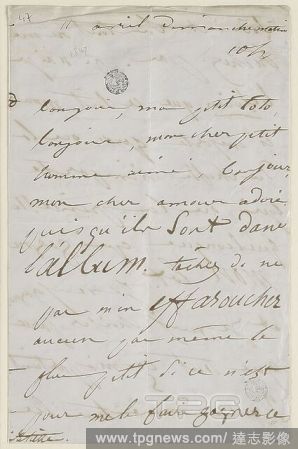 47
11 avril Dimanche matin
10h
bonjour, mon petit toto,
bonjour, mon cher petit
homme aimé, bonjour
mon cher amour adoré,
puisqu'ils sont dans
l'album. tâchez de ne
pas m'en effaroucher
aucun pas même le
plus petit si ce n'est
pour me le faire gagner ce
TPG
www.tpgnews.com / 達志影像